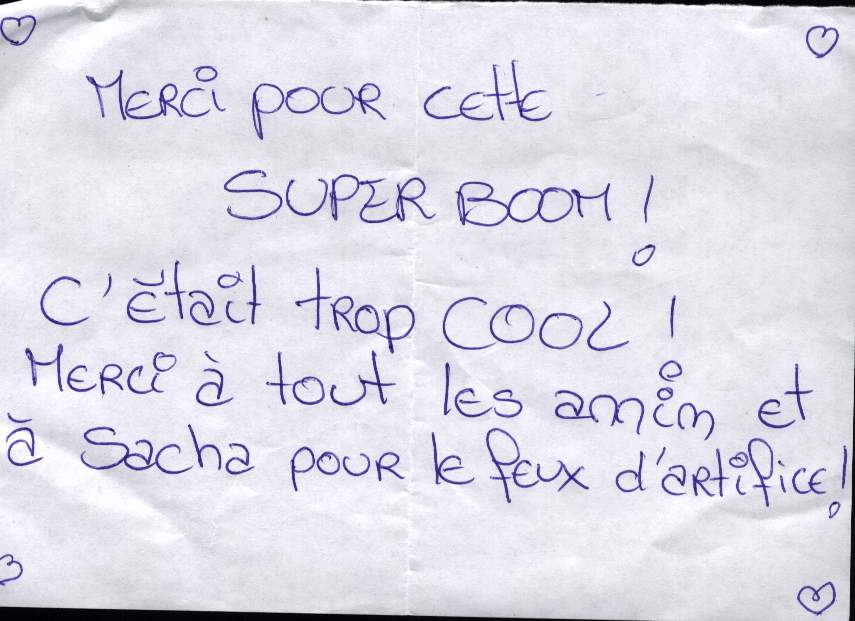 Merci pour cette
SUPER BOOM !
C'était trop COOL !
Merci à tout les amim et
à Sacha pour le feux d'artifice !